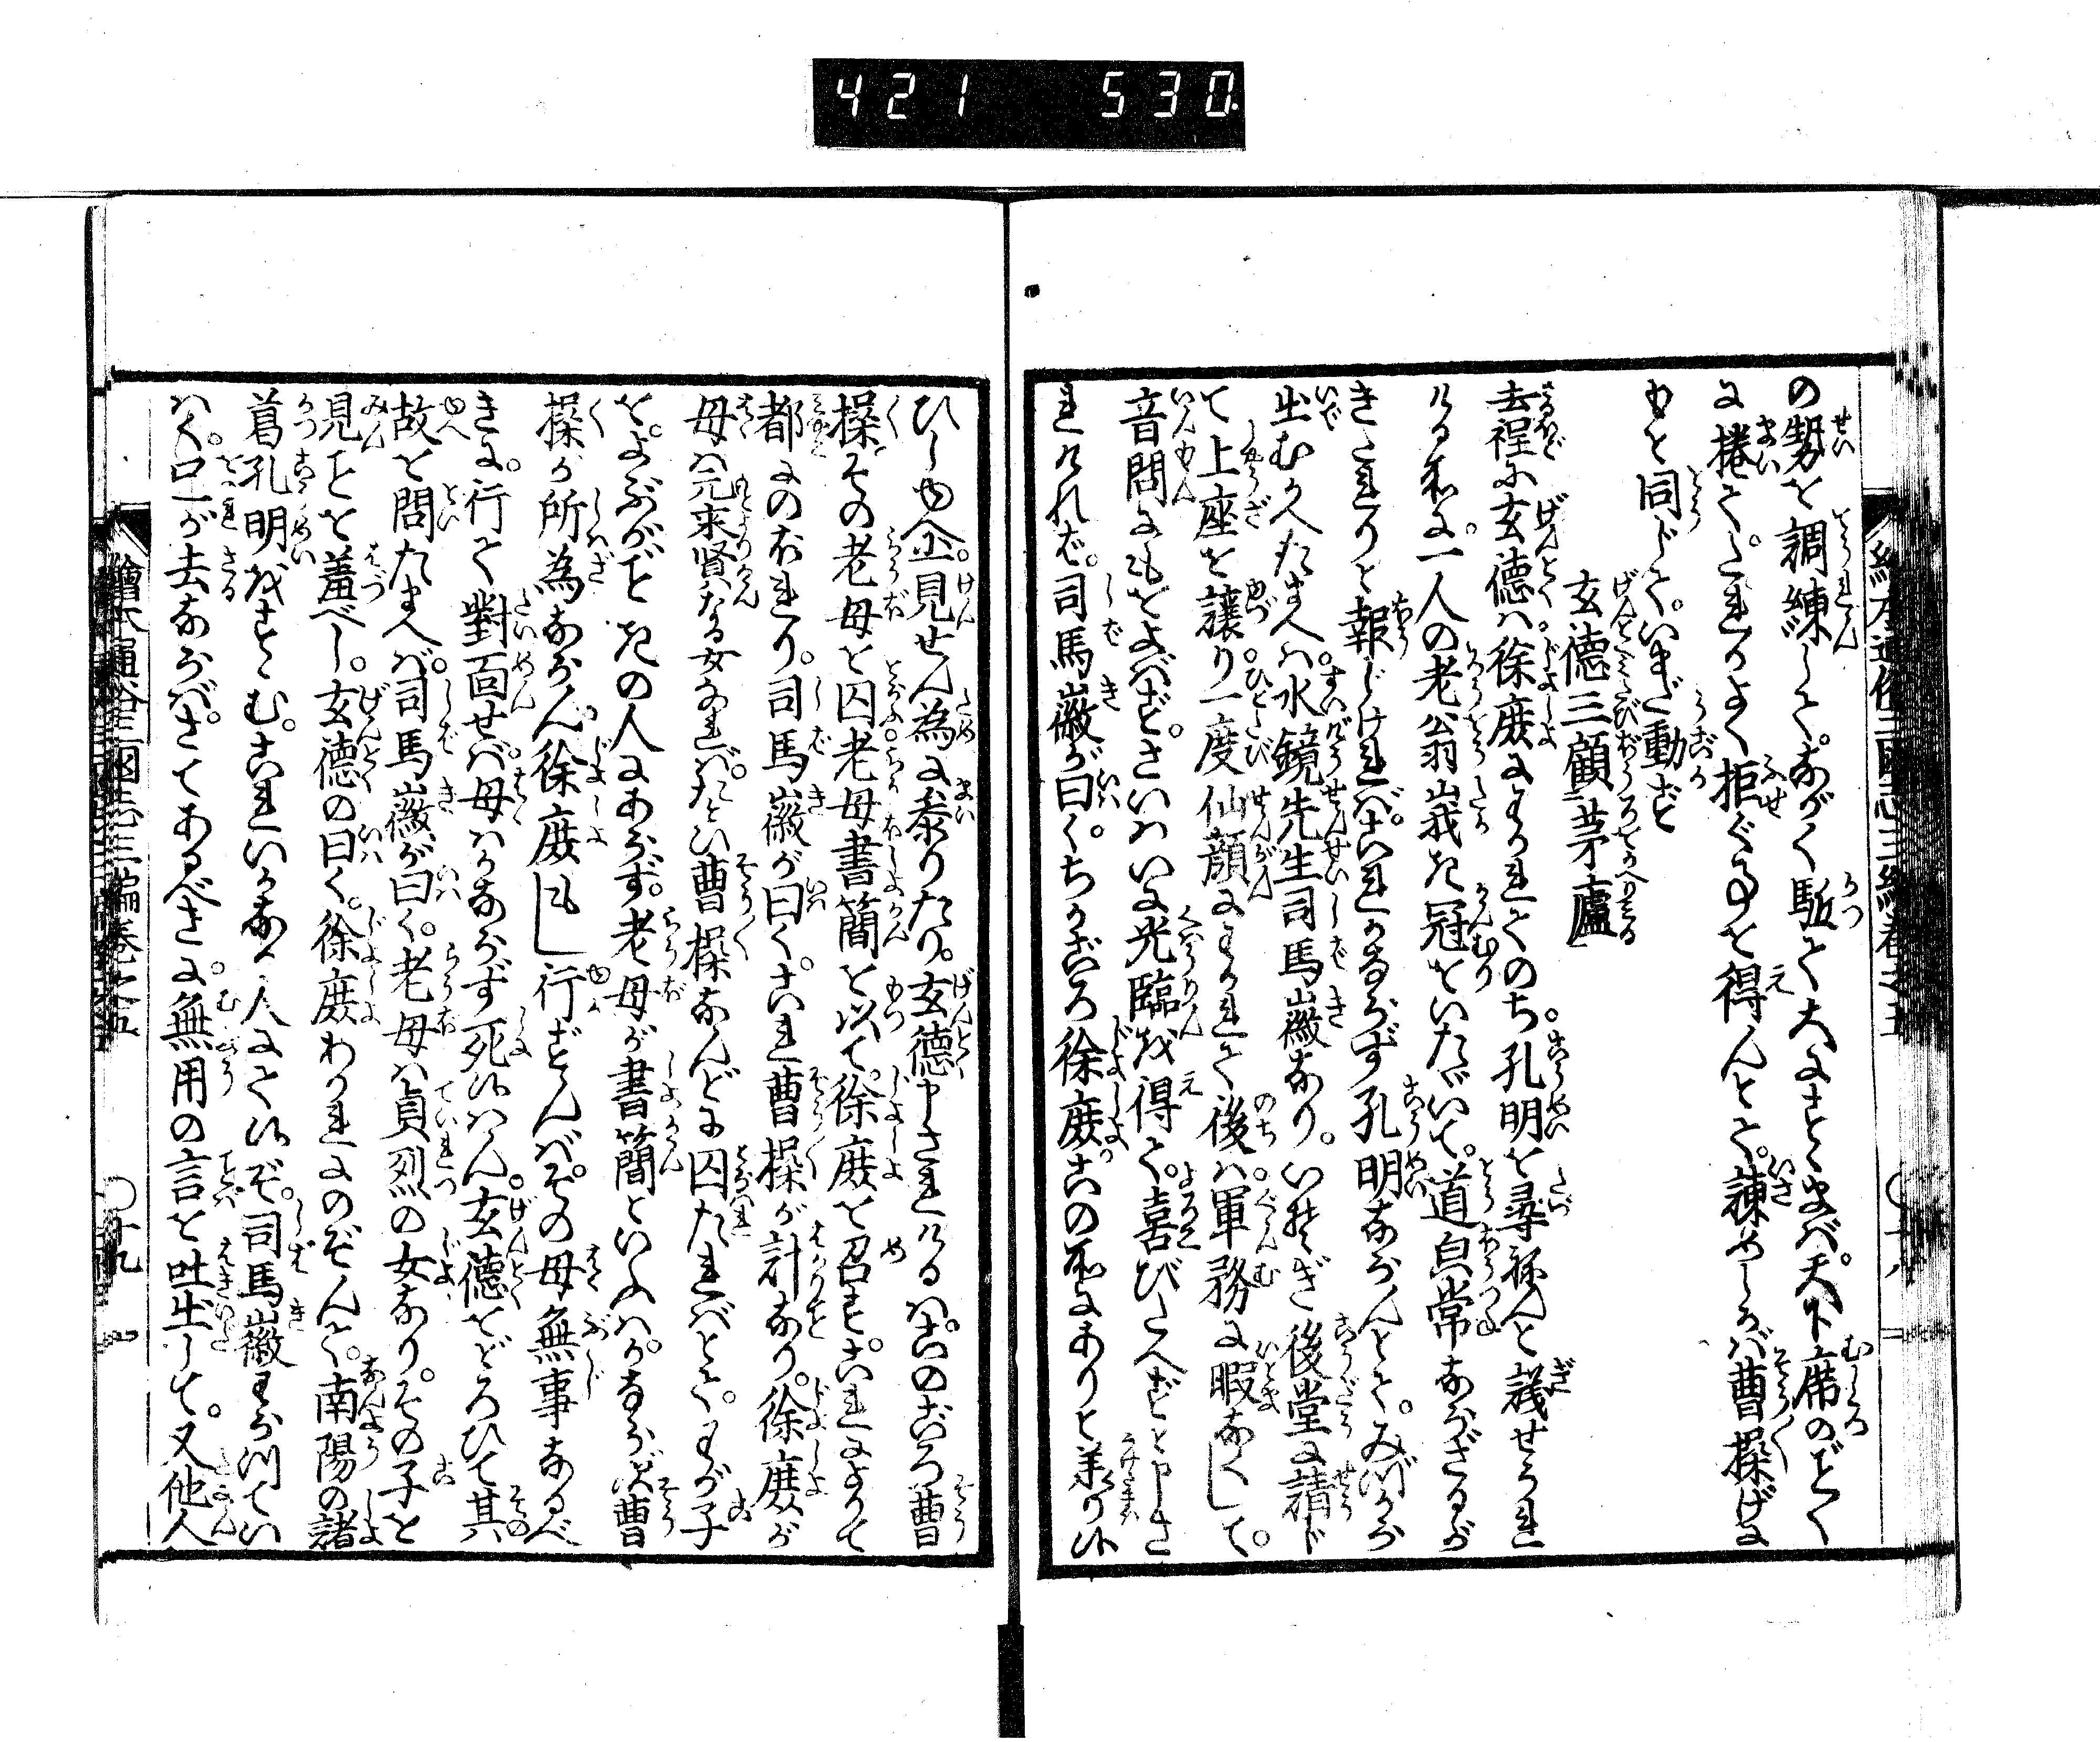 421 530
繪本通俗三國志三編卷之五
の勢を調練して。ながく駈て大にすゝまバ。天下席のごとく
に捲て。これをよく拒ぐ事を得んとて。諫めしかバ曹操げに
もと同じて。いまだ動ず
玄德三顧茅廬
去程に玄德ハ。徐庶にわかれてのち。孔明を尋ねんと議せられ
ける所に。一人の老翁峩き冠をいたゞいて。道皃常ならざるが
きたれりと報じければ。これかならず孔明ならんとて。みづから
出むかへたまへハ。水鏡先生司馬徽なり。いそぎ後堂に請ド
て上座を讓り。一度仙顔にわかれて後ハ。軍務に暇なくして。
音問にもをよバず。さいはいに光臨を得て。喜びたへずと申さ
れけれバ。司馬徽が曰く。ちかごろ徐庶。この所にありと羕り候
ひしゆ企。見せん為に参りたり。玄德申されけるハ。このごろ曹
操。その老母を囚。老母書簡を以て。徐庶を召す。これによりて
都にのぼれり。司馬徽が曰く。これ曹操が計なり。徐庶が
母ハ元来賢なる女なれバ。たとひ曹操なんどに囚たればとて。わが子
を。よぶがごときの人にあらず。老母が書簡といふハ。かならず曹
操が所為ならん。徐庶もし行ずんバ。その母無事なるべ
きに。行て對面せバ。母ハかならず死候はん。玄德をどろひて其
故を問たまへバ。司馬徽が曰く。老母ハ貞烈の女なり。その子を
見ことを羞べし。玄德の曰く。徐庶わかれにのぞんで。南陽の諸
葛孔明をすゝむ。これいかなる人にて候ぞ。司馬徽わらひてい
はく。只が去ならバ。さてあるべきに。無用の言を吐出して。又他人
繪本通俗三國志三編卷之五
〇十九